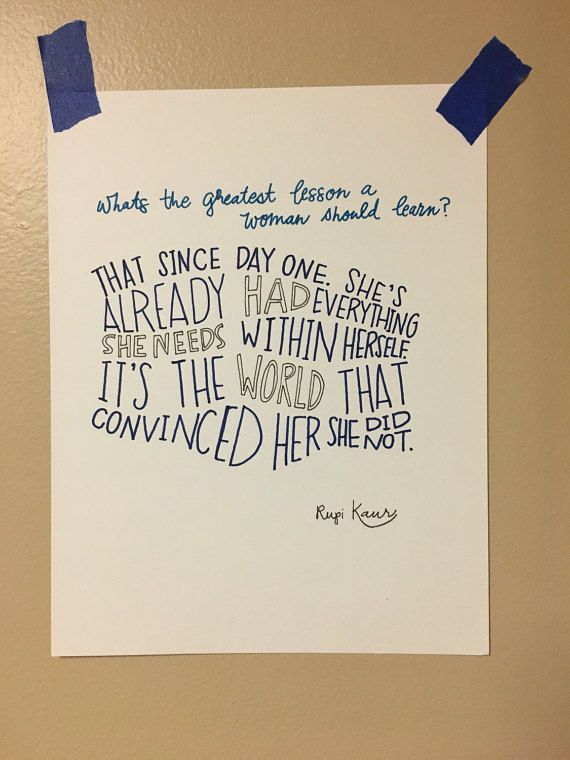 whats the greatest lesson a
woman should learn?
THAT SINCE DAY ONE. SHE'S
ALREADY HAD EVERYTHING
SHE NEEDS WITHIN HERSELF.
IT'S THE WORLD THAT
CONVINCED HER SHE DID NOT.
Rupi Kaur